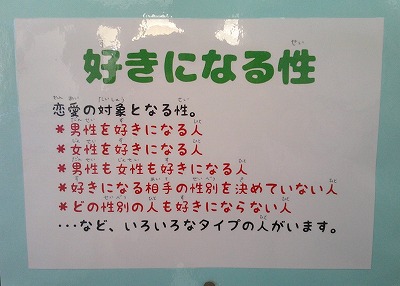 好きになる性
恋愛の対象となる性。
*男性を好きになる人
*女性を好きになる人
*男性も女性も好きになる人
*好きになる相手の性別を決めていない人
*どの性別の人も好きにならない人
・・・など、いろいろなタイプの人がいます。